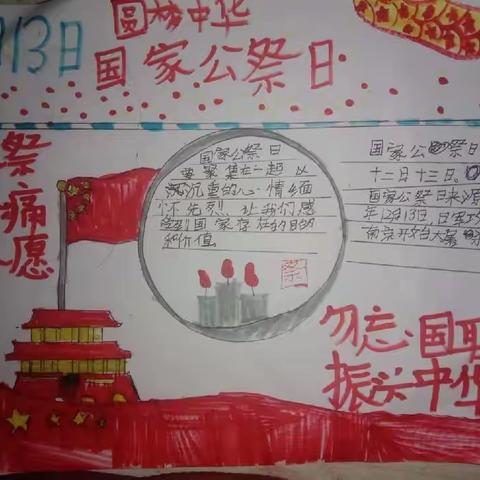 圆梦中华
月13日
国家公祭日
祭
痛
愿
国家公祭日
要聚集在一起以
沉重的心情缅
怀先烈 让我们感
受到国家存在的目的
和价值
祭
国家公祭日
十二月十三日
国家公祭日来源
年12月13日,日军攻
南京开始大屠
勿忘国耻
振兴中华